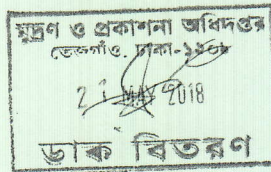 মুদ্রণ ও প্রকাশনা অধিদপ্তর
তেজগাঁও, ঢাকা-১২০৮
2 1 MAY 2018
ডাক বিতরণ